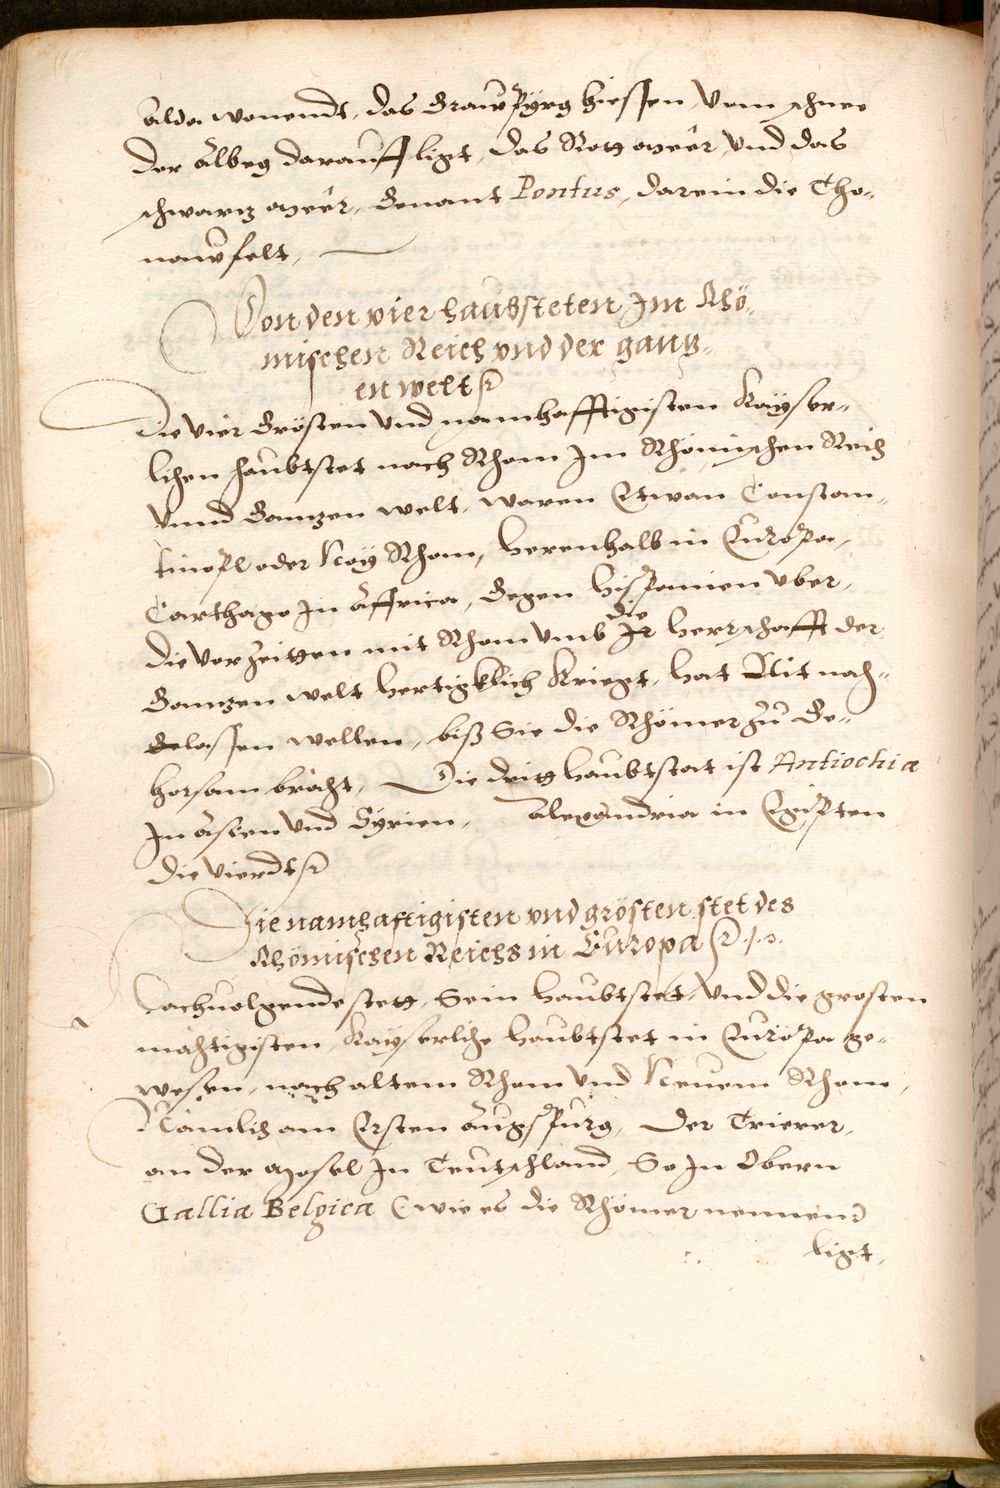 alda wonendt, das Grawpyrg hiessen, Vom schnee
der älbeg darauff ligt, das Rott meêr, Vnd das
schwartz meêr, Genant Pontus, darein die Tho-
naw felt,
Von den vier haubsteten Im Rhö-
mischen Reich vnd der gantz-
en welt
Die Vier Grösten Vnd namhafftigisten Kayser-
lichen haubtstet nach Rhom Im Rhömischen Reich
Vnnd Ganntzen welt, waren Etwan Constan-
tinopl oder Neẅ Rhom, herenhalb in Europa,
Carthago In affrica, Gegen hispanien vber,
die Vor Zeitten mit Rhom vmb die Ir herrschafft der
Ganntzen welt hertigklich kriegt, hat Nit nach-
Gelassen wellen, biß Sie die Rhömer zu Ge-
horsam bracht, Die dritt haubtstat ist Antiochia
In asien Vnd Syrien, alexandria in Egipten
die Vierdt
Die namhaftigisten vnd grösten stet des
Rhömischen Reichs in Europa
Nachuolgende stett, Sein haubtstet, Vnd die grosten
machtigisten, Kayserliche haubtstet in Europa ge-
wesen, nach altem Rhom Vnd Neuem Rhom,
Nämlich am Ersten augspurg, Der Trierer,
an der Mosel In Teutschland, So In Obern
Gallia Belgica (wie es die Rhömer nennen)
ligt,